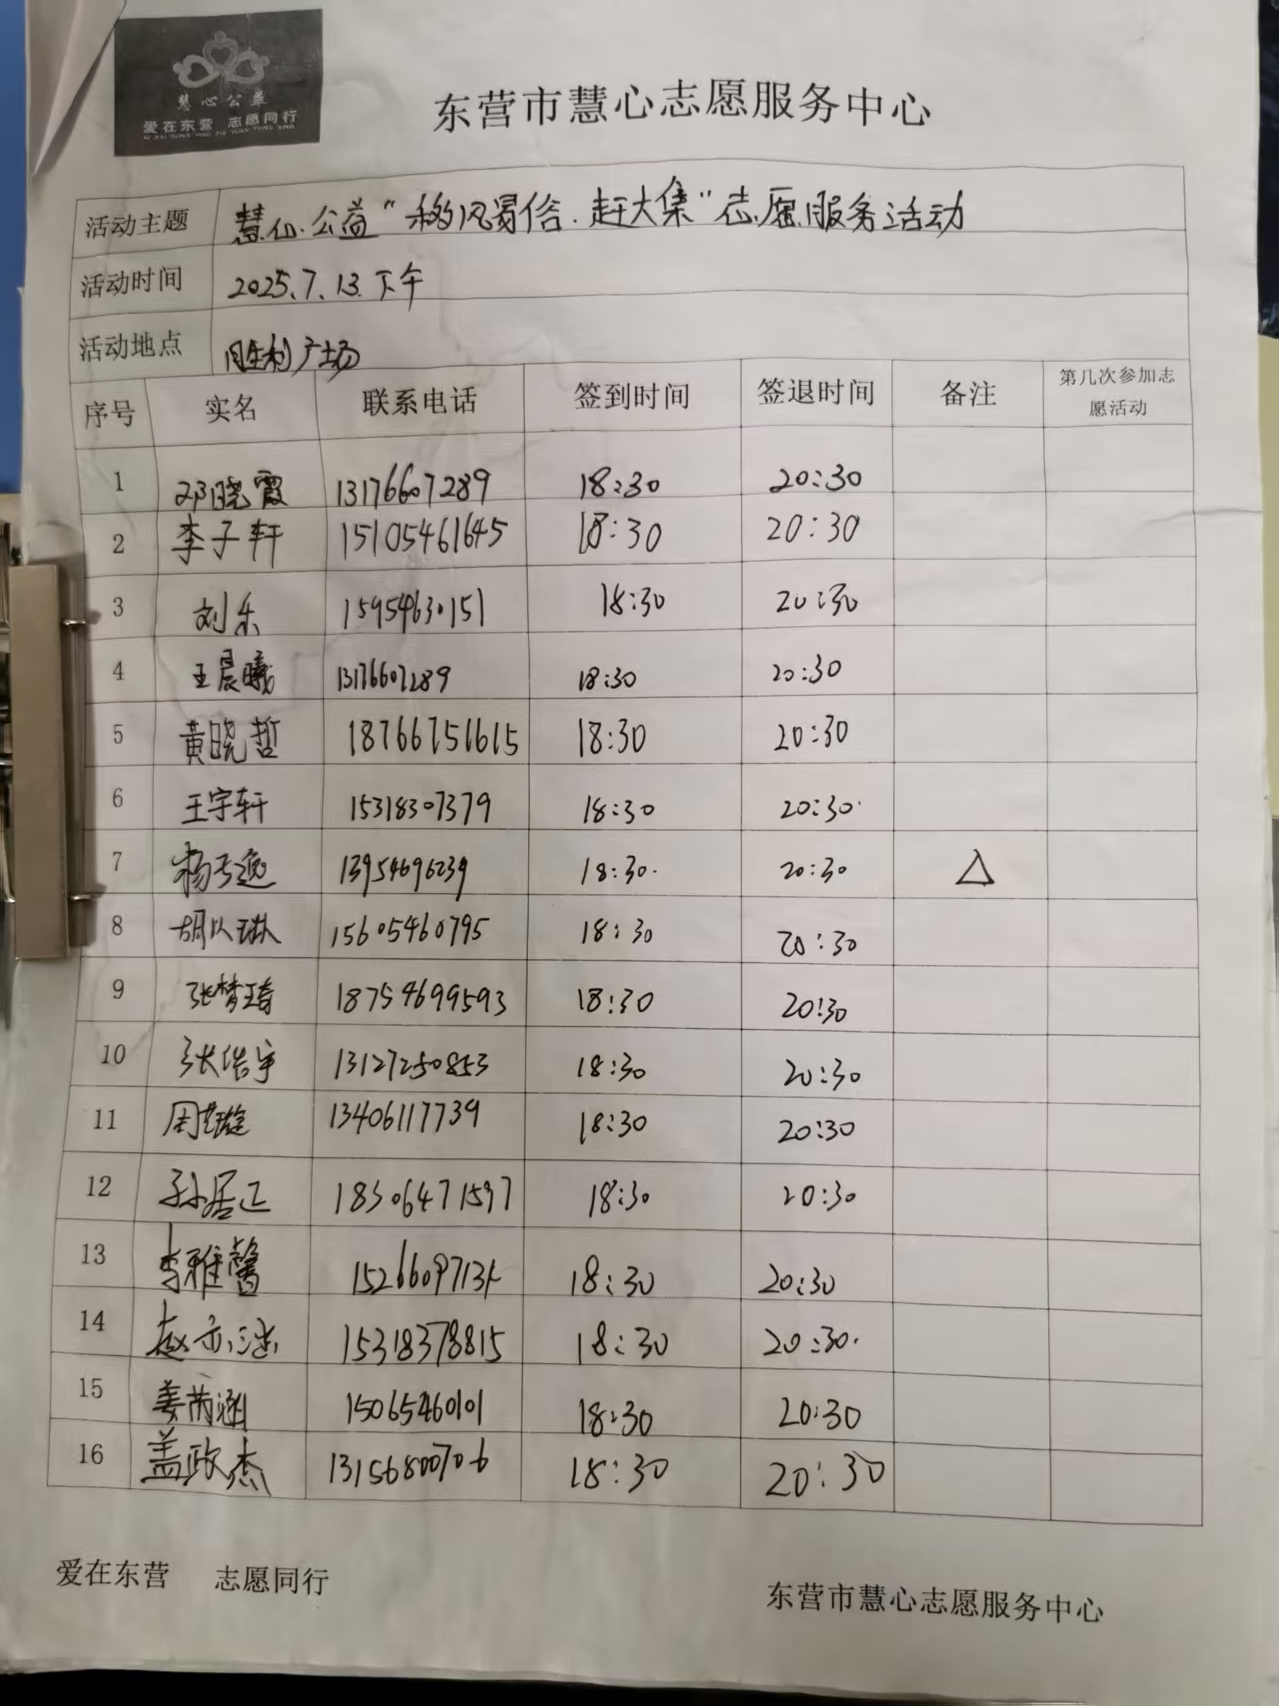 慧心公益
爱在东营 志愿同行
AI ZAI DONG YING ZHI YUAN TONG XING
东营市慧心志愿服务中心
活动主题 慧心公益“移风易俗.赶大集”志愿服务活动
活动时间 2025.7.13.下午
活动地点 胜利广场
序号 实名 联系电话 签到时间 签退时间 备注 第几次参加志愿活动
1 邓晓霞 13176607289 18:30 20:30
2 李子轩 15105461645 18:30 20:30
3 刘乐 15954630151 18:30 20:30
4 王晨曦 13176607289 18:30 20:30
5 黄晓哲 18766751615 18:30 20:30
6 王宇轩 15318307379 18:30 20:30
7 杨子逸 13954696239 18:30 20:30 △
8 胡以琳 15605460795 18:30 20:30
9 张梦琦 18754699593 18:30 20:30
10 张浩宇 13127250853 18:30 20:30
11 周 13406117739 18:30 20:30
12 孙居正 18306471597 18:30 20:30
13 李雅馨 18:30 20:30
14 赵亦涵 15318378815 18:30 20:30
15 姜芮涵 15065460101 18:30 20:30
16 盖政杰 13156800706 18:30 20:30
爱在东营 志愿同行
东营市慧心志愿服务中心